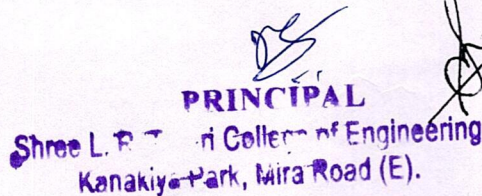 PRINCIPAL
Shree L. R. College of Engineering
Kanakiya Park, Mira Road (E).